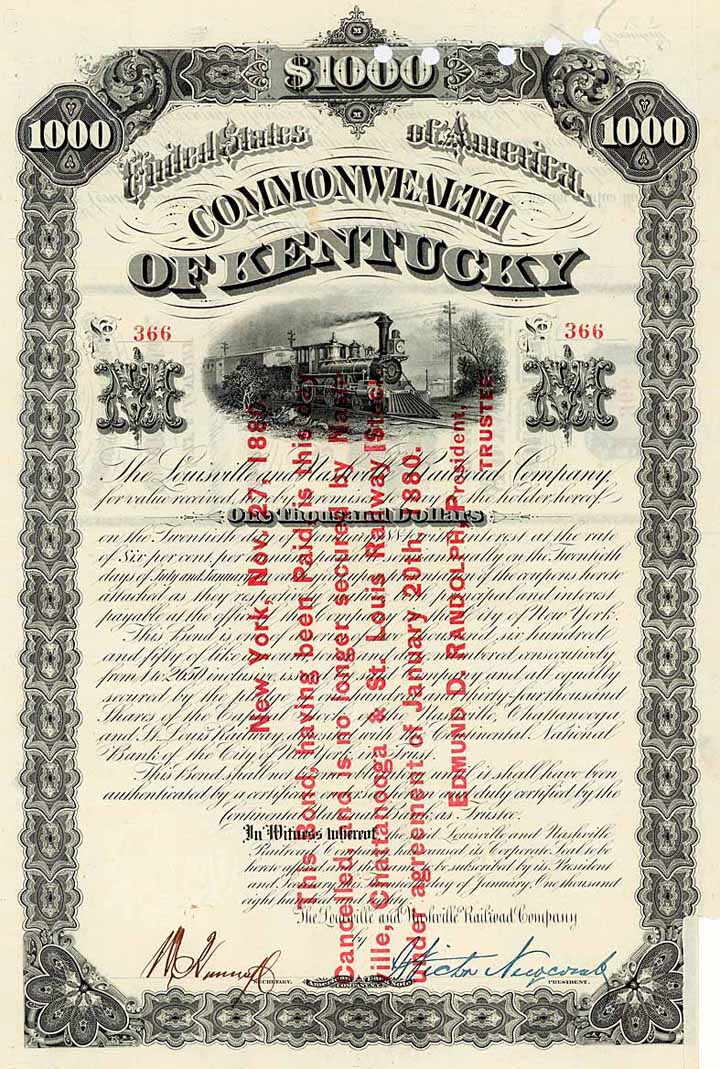 $1000
1000 1000
United States of America.
COMMONWEALTH
OF KENTUCKY
366 366
The Louisville and Nashville Railroad Company,
for value received, hereby promises to pay to the holder hereof
One Thousand Dollars
on the Twentieth day of interest at the rate
of Six per cent. per annum payable semi-annually on the Twentieth
days of July and January upon of the coupons hereto
attached as they respectively principal and interest
payable at the office of the Company in the City of New York.
This Bond is one of a series of two thousand six hundred
and fifty of like amount and numbered consecutively
from 1 to 2650 inclusive, issued by Company and all equally
secured by the pledge of hundred and thirty-four thousand
Shares of the Capital Stock of the Nashville, Chattanooga
and St. Louis Railway, deposited with the Continental National
Bank of the City of New York, in Trust.
This Bond shall not become obligatory until it shall have been
authenticated by a certificate endorsed hereon and duly certified by the
Continental National Bank, as Trustee.
In Witness whereof, the said Louisville and Nashville
Railroad Company has caused its Corporate Seal to be
hereto affixed and the same to be subscribed by its President
and Secretary this day of January, One thousand
eight hundred and eighty.
The Louisville and Nashville Railroad Company
by
Victor Newcomb
SECRETARY. PRESIDENT.
New York, Nov. 27, 1880
This Bond, having been Paid, is this day
Cancelled, and is no longer secured by Nash-
ville, Chattanooga & St. Louis Railway [Stock]
under agreement of January 20th, 1880.
EDMUND D. RANDOLPH, President,
TRUSTEE